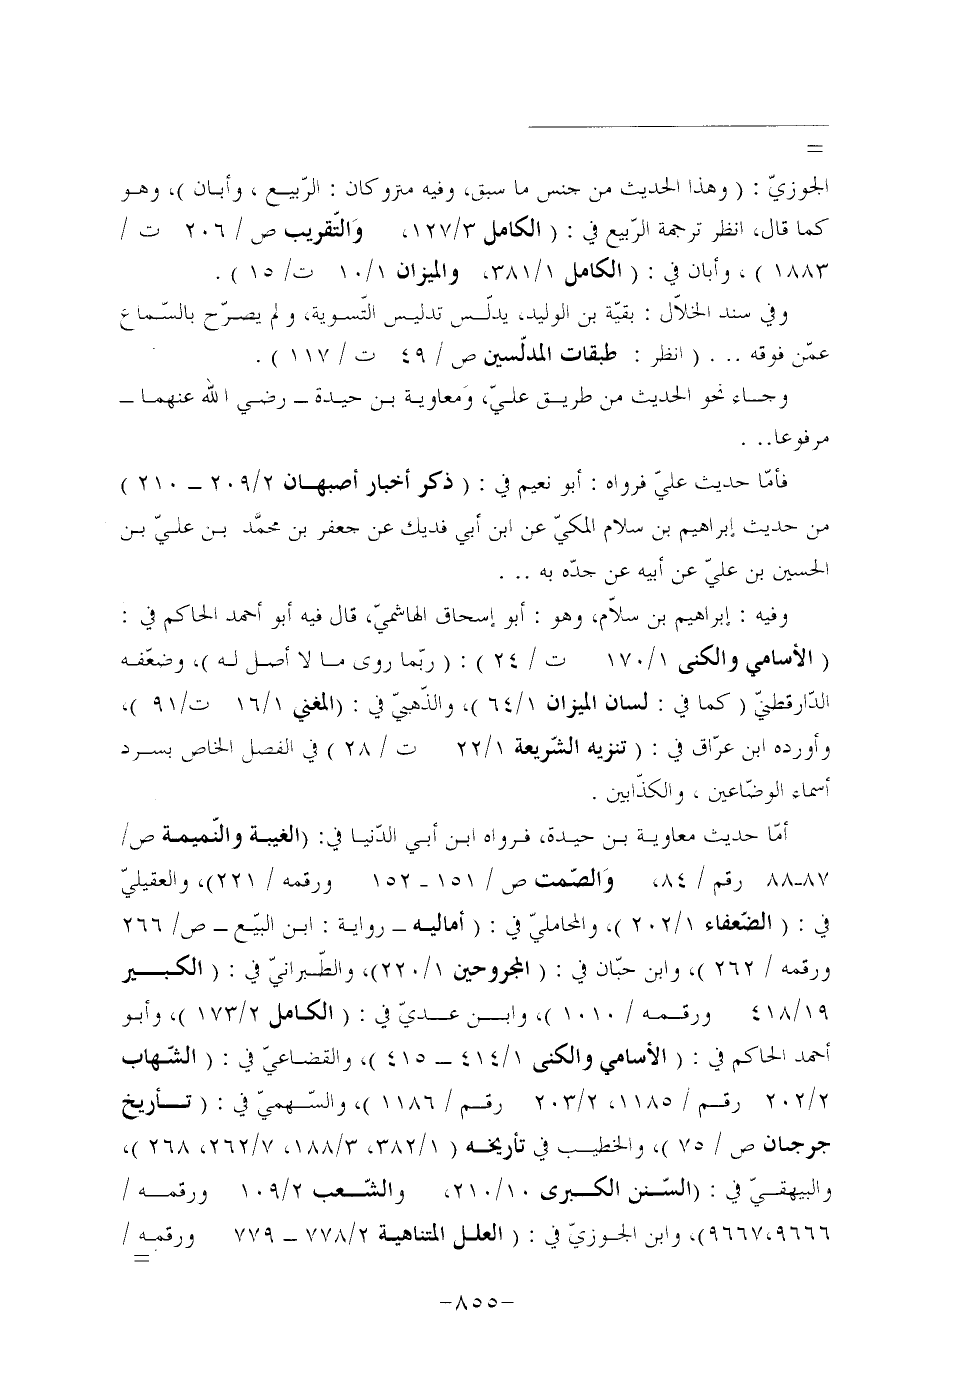 =
الجوزيّ : ( وهذا الحديث من جنس ما سبق، وفيه متروكان : الرّبيع ، وأبان )، وهـو
كما قال، انظر ترجمة الرّبيع في : ( الكامل ١٢٧/٣، وَالتّقريب ص / ٢٠٦ ت /
١٨٨٣ ) ، وأبان في : ( الكامل ٣٨١/١، والميزان ١٠/١ ت/ ١٥ ) .
وفي سند الخلاّل : بقيّة بن الوليد، يدلّـس تدليـس التّسوية، و لم يصـرّح بالسّـماع
عمّن فوقه .. . ( انظر : طبقات المدلّسين ص / ٤٩ ت / ١١٧ ) .
وجـاء نحو الحديث من طريـق علـيّ، وَمعاويـة بـن حيـدة ـ رضـي ا لله عنهمـا ـ
مرفوعا.. .
فأمّا حديث عليّ فرواه : أبو نعيم في : ( ذكر أخبار أصبهـان ٢٠٩/٢ – ٢١٠ )
من حديث إبراهيم بن سلام المكيّ عن ابن أبي فديك عن جعفر بن محمَّد بـن علـيّ بـن
الحسين بن عليّ عن أبيه عن جدّه به .. .
وفيه : إبراهيم بن سلاّم، وهو : أبو إسحاق الهاشميّ، قال فيه أبو أحمد الحاكم في :
( الأسامي والكنى ١٧٠/١ ت / ٢٤ ) : ( ربّما روى مـا لا أصـل لـه )، وضعّفـه
الدّارقطنيّ ( كما في : لسان الميزان ٦٤/١ )، والذّهبيّ في : (المغني ١٦/١ ت/٩١ )،
وأورده ابن عرّاق في : ( تنزيه الشّريعة ٢٢/١ ت / ٢٨ ) في الفصل الخاص بسـرد
أسماء الوضّاعين ، والكذّابين .
أمّا حديث معاوية بـن حيـدة، فـرواه ابـن أبـي الدّنيـا في: (الغيبة والنّميمـة ص/
٨٧-٨٨ رقم / ٨٤، وَالصّمت ص / ١٥١ - ١٥٢ ورقمه / ٢٢١)، والعقيليّ
في : ( الضّعفاء ٢٠٢/١ )، والمحامليّ في : ( أماليـه – رواية : ابـن البيّـع – ص/ ٢٦٦
ورقمه / ٢٦٢ )، وابن حبّان في : ( المجروحين ٢٢٠/١)، والطّـبرانيّ في : ( الكبـــير
٤١٨/١٩ ورقـمـه / ١٠١٠ )، وابــن عــديّ في : ( الكـامل ١٧٣/٢ )، وأبـو
أحمد الحاكم في : ( الأسامي والكنى ٤١٤/١ – ٤١٥ )، والقضاعيّ في : ( الشّـهاب
٢٠٢/٢ رقـم / ١١٨٥، ٢٠٣/٢ رقـم / ١١٨٦ )، والسّـهميّ في : ( تـــأريخ
جرجـان ص / ٧٥ )، والخطيـب في تأريخـه ( ٣٨٢/١، ١٨٨/٣، ٢٦٢/٧، ٢٦٨ )،
والبيهقـيّ في : (السّـنن الكـبرى ٢١٠/١٠، والشّـعب ١٠٩/٢ ورقمــه /
٩٦٦٦،٩٦٦٧)، وابن الجـوزيّ في : ( العلـل المتناهيـة ٧٧٨/٢ – ٧٧٩ ورقمـه /
=
-٨٥٥-